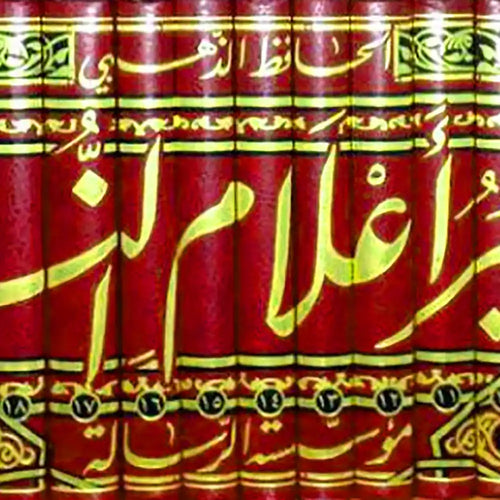 الحافظ الذهبي
ـيرُ أعلام النبـ
١١ ١٢ ١٣ ١٤ ١٥ ١٦ ١٧ ١٨
مؤسسة الرسالة